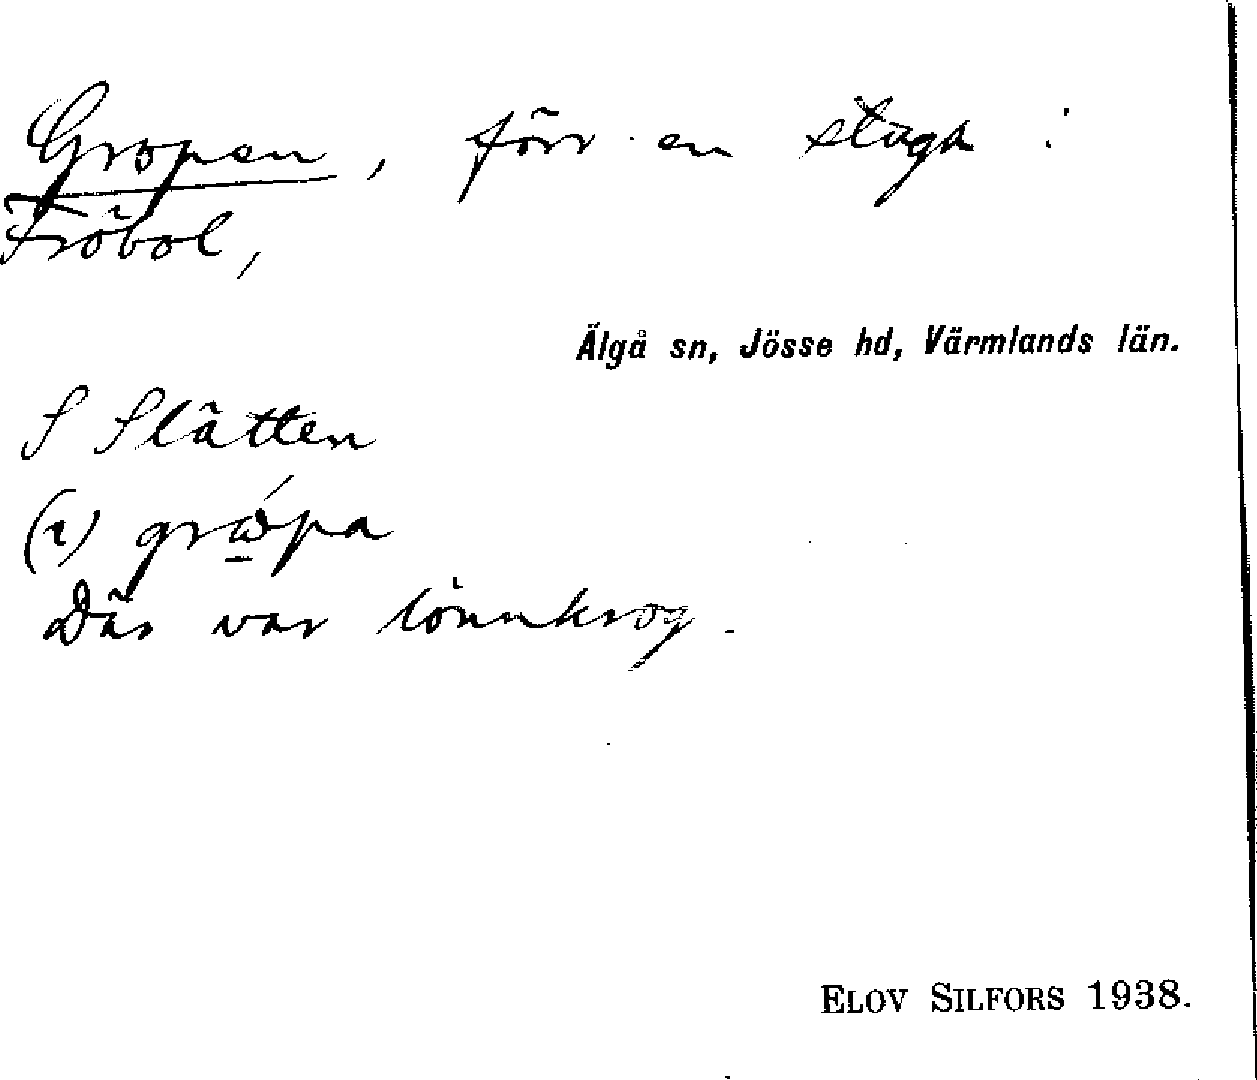 Gropen, förr en stuga i
Fröbol,
Älgå sn, Jösse hd, Värmlands län.
S Slätten
(i)
Där var lönnkrog.
ELOV SILFORS 1938.